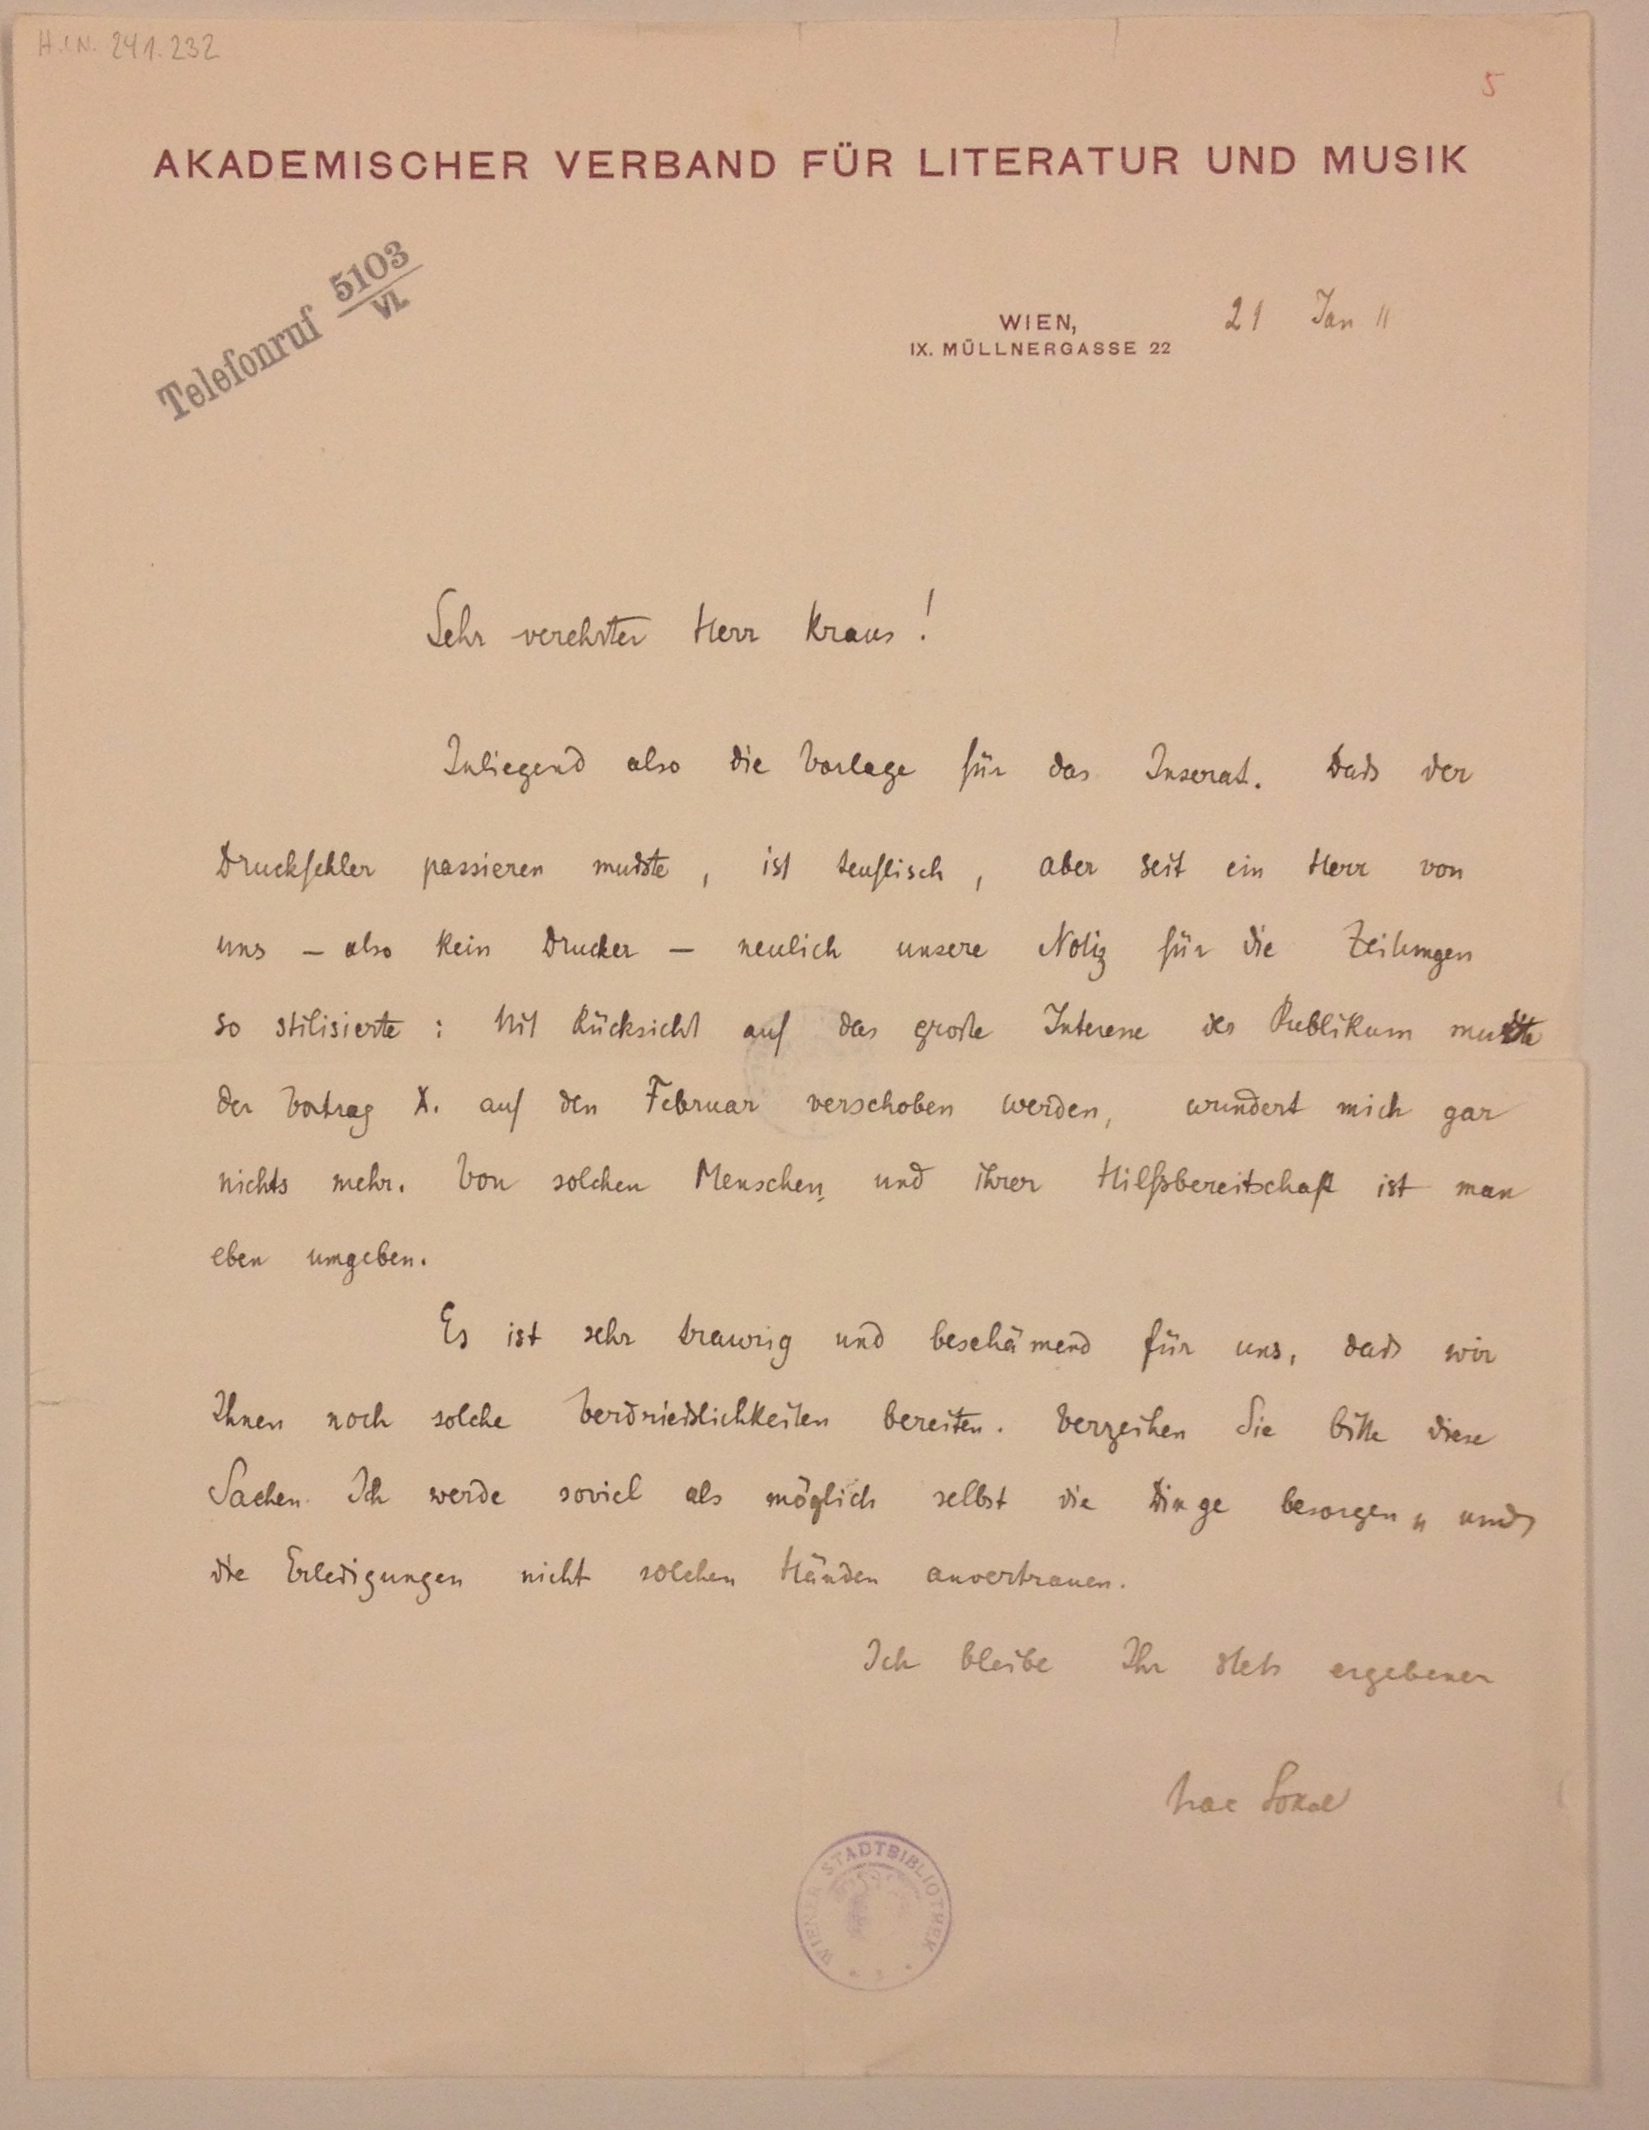 H.I.N. 241.232
5
AKADEMISCHER VERBAND FÜR LITERATUR UND MUSIK
Telefonruf 5103/VI.
WIEN, 21 Jan 11
IX. MÜLLNERGASSE 22
Sehr verehrter Herr Kraus!
Inliegend also die Vorlage für das Inserat. Daß der
Druckfehler passieren mußte, ist teuflisch, aber seit ein Herr von
uns – also kein Drucker – neulich unsere Notiz für die Zeitungen
so stilisierte: Mit Rücksicht auf das große Interesse des Publikum mußte
der Vortrag X. auf den Februar verschoben werden, wundert mich gar
nichts mehr. Von solchen Menschen, und ihrer Hilfsbereitschaft ist man
eben umgeben.
Es ist sehr traurig und beschämend für uns, daß wir
Ihnen noch solche Verdrießlichkeiten bereiten. Verzeihen Sie bitte diese
Sachen. Ich werde soviel als möglich selbst die Dinge besorgen, und
die Erledigungen nicht solchen Händen anvertrauen.
Ich bleibe Ihr stets ergebener
WIENER STADTBIBLIOTHEK